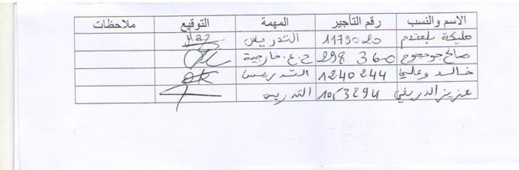 الاسم والنسب رقم التأجير المهمة التوقيع ملاحظات
مليكة بلمقدم 1179020 التدريس
صالح حوحوح 298 360 ح.ع.خارجية
خالد وعلي 1240244 التدريس
عزيز الدريفي 1053294 التدريس